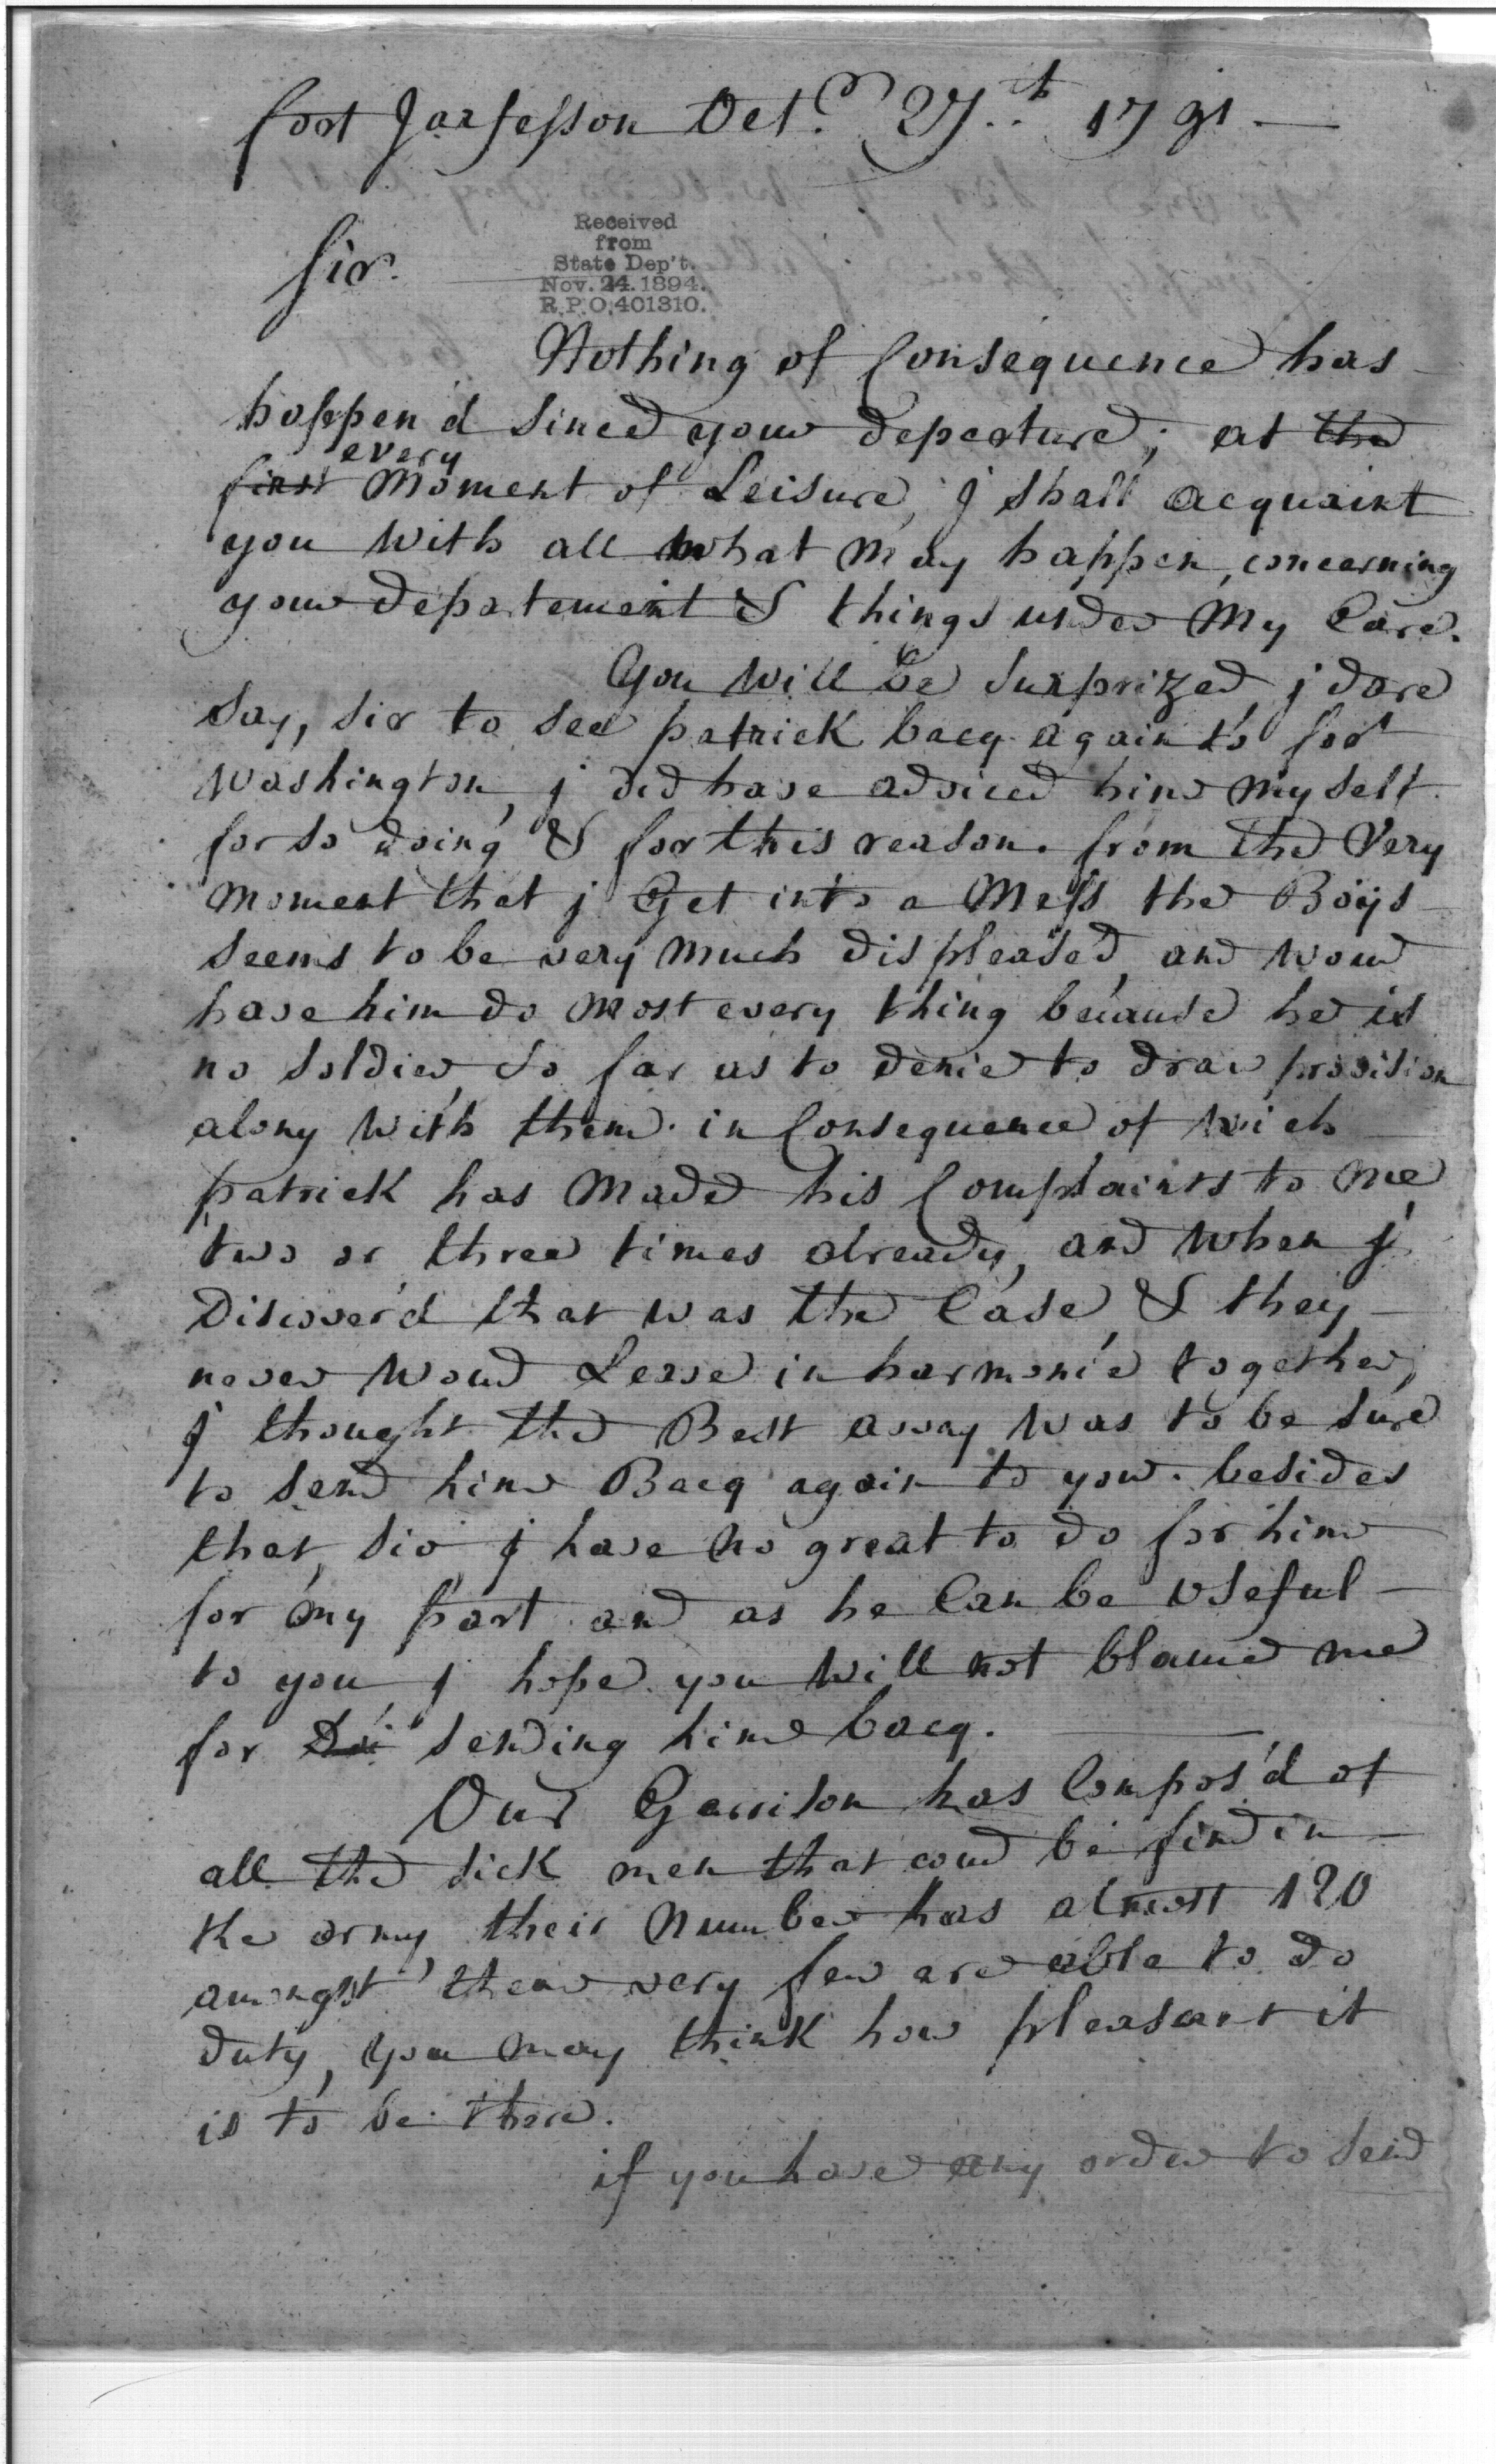 fort Jarfesson Oct.r 27..t 1791.—
Sir.
Received
from
State Dep't.
Nov. 24. 1894.
R.P.O. 401310.
Nothing of Consequence has
happen'd since your departure; at the
every
first Moment of Leisure, j shall acquaint
you with all what may happen, concerning
your departement & things under My Care.
You will be surprized j dare
say, sir to see patrick bacq again to fort
Washington, j did have adviced him myself
for so doing & for this reason. from the Very
moment that j Get into a Mess the Boys
seems to be very much displeased, and woud
have him do most every thing because he is
no soldier, so far as to denie to draw provision
along with them. in Consequence of wich
patrick has Maded his Complaints to me
two or three times already, and when j
Discover'd that was the Case, & they
never woud Leave in harmonie together,
j thought the Best away was to be sure
to send him Bacq again to you. besides
that, sir j have no great to do for him
for my part and as he Can be useful
to you, j hope you will not blame me
for Doi sending him bacq.
Our Garrison has Compos'd of
all the sick men that coud be find in
the army, their Number has almost 120
amongst them very few are able to do
duty, you may think how pleasant it
is to be there.
if you have any order to send